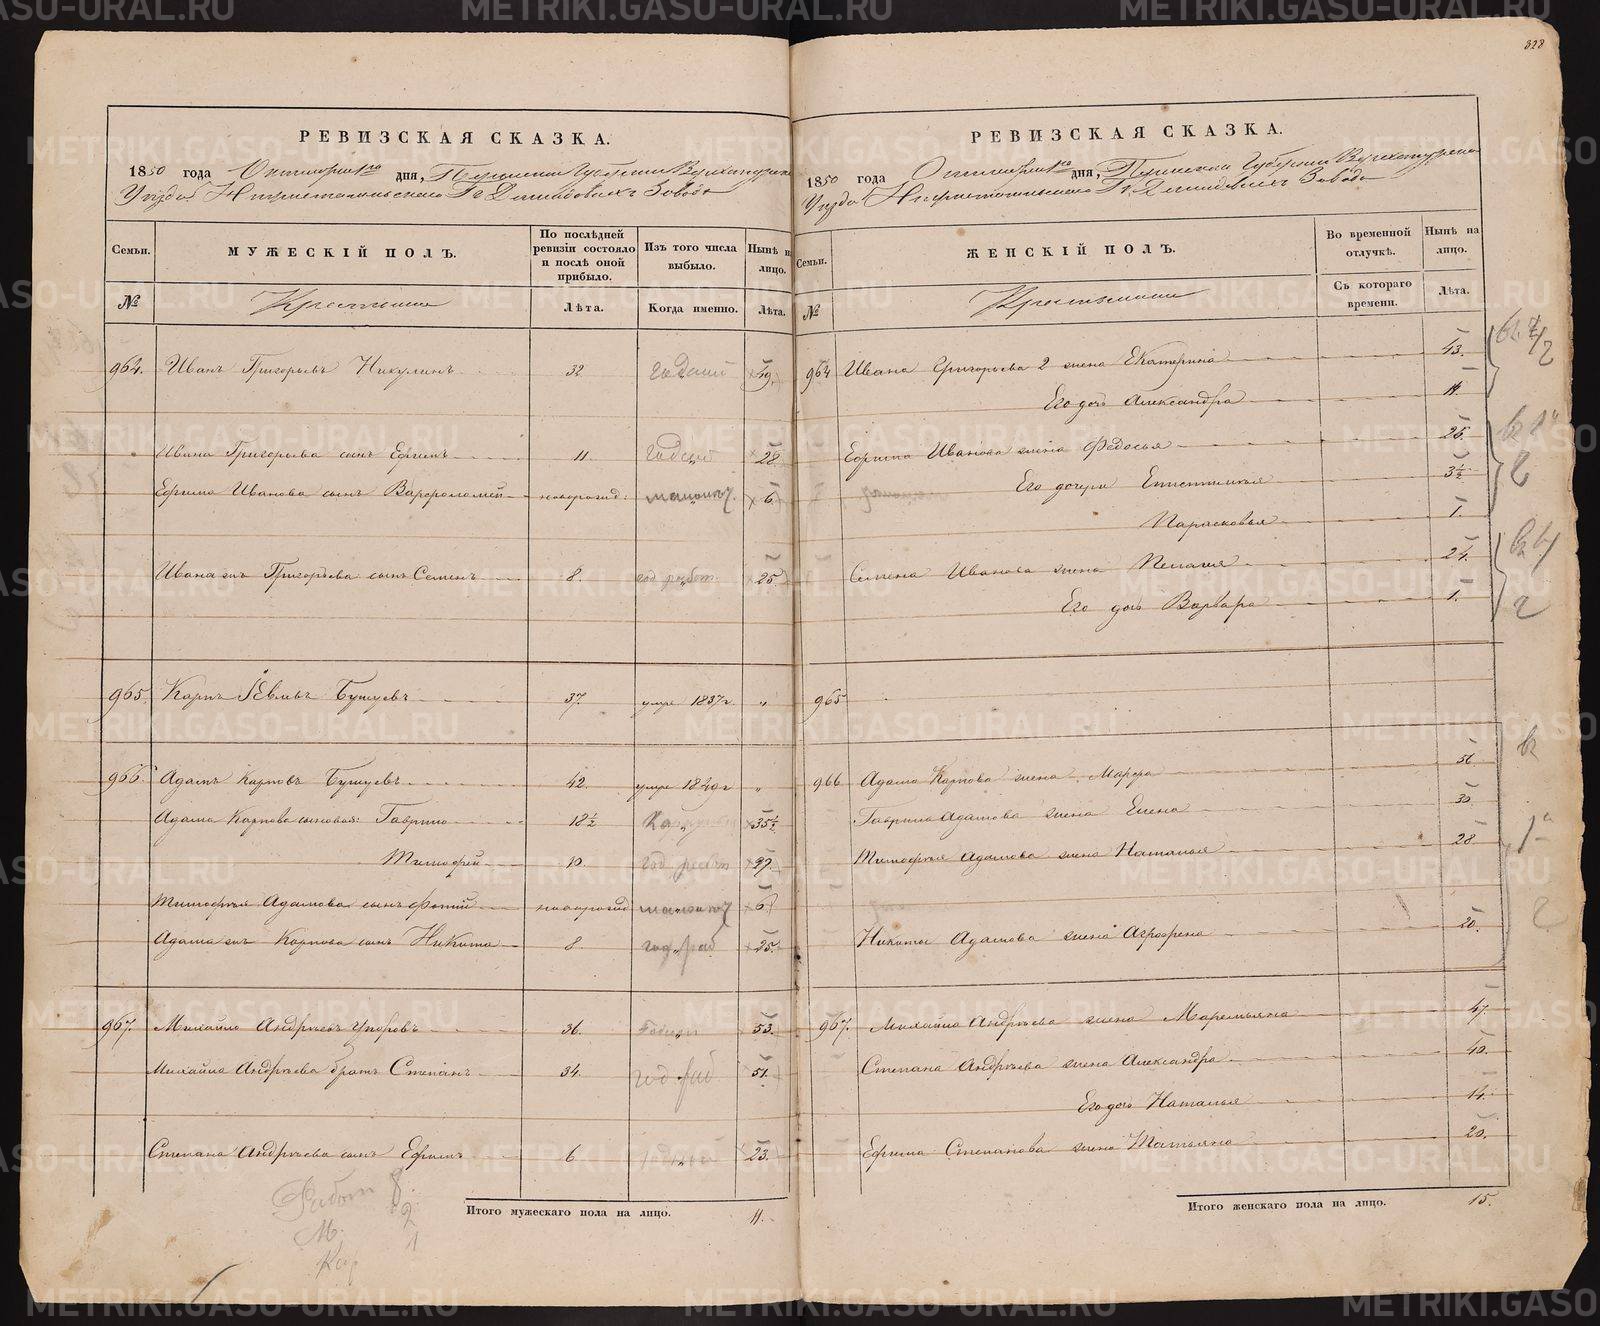 328
РЕВИЗСКАЯ СКАЗКА.
1850 года Октября 1го дня, Пермской Губернии Верхотурскаго
Уѣзда Нижнетагильскаго Гг. Демидовыхъ Завода
Семьи.
МУЖЕСКІЙ ПОЛЪ.
По послѣдней ревизіи состояло и послѣ оной прибыло.
Изъ того числа выбыло.
Нынѣ на лицо.
№
Крестьяне
Лѣта.
Когда именно.
Лѣта.
964. Иванъ Григорьевъ Никулинъ 32 Годный 49.
Ивана Григорьева сынъ Ефимъ 11. Годный 28
Ефима Иванова сынъ Варфоломей новорожд: 6
Ивана жъ Григорьева сынъ Семенъ 8. год работ 25
965. Карпъ Бушуевъ 37. умре 1837г. „
966. Адамъ Карповъ Бушуевъ 42. умре 1849г „
Адама Карпова сыновья: Гаврило 18½ 35½
Тимофей 10. год работ 27
Тимофея Адамова сынъ Фотий новорожд 6
Адама жъ Карпова сынъ Никита 8 год раб 25.
967. Михайло Андреевъ Упоровъ 36. Годный 53.
Михайла Андреева братъ Степанъ 34. год раб 51.
Степана Андреева сынъ Ефимъ 6 Годный 23.
Итого мужескаго пола на лицо. 11.
Работ 8
М. 2
Кар 1
РЕВИЗСКАЯ СКАЗКА.
1850 года Октября 1го дня, Пермской Губернии Верхотурскаго
Уѣзда Нижнетагильскаго Гг. Демидовыхъ Завода
Семьи.
ЖЕНСКІЙ ПОЛЪ.
Во временной отлучкѣ.
Нынѣ на лицо.
№
Крестьянки
Съ котораго времени.
Лѣта.
964 Ивана Григорьева 2 жена Екатерина 43.
Его дочь Александра 14.
Ефима Иванова жена Федосья 26.
Его дочери Епистимья 3½
Парасковья 1.
Семена Иванова жена Пелагея 24.
Его дочь Варвара 1.
965
966 Адама Карпова жена Марфа 56
Гаврила Адамова жена Елена 30.
Тимофея Адамова жена Наталья 28
Никиты Адамова жена Агрофена 20.
967. Михайла Андреева жена Маремьяна 47.
Степана Андреева жена Александра 40.
Его дочь Наталья 14.
Ефима Степанова жена Татьяна 20.
Итого женскаго пола на лицо. 15.
METRIKI.GASO-URAL.RU